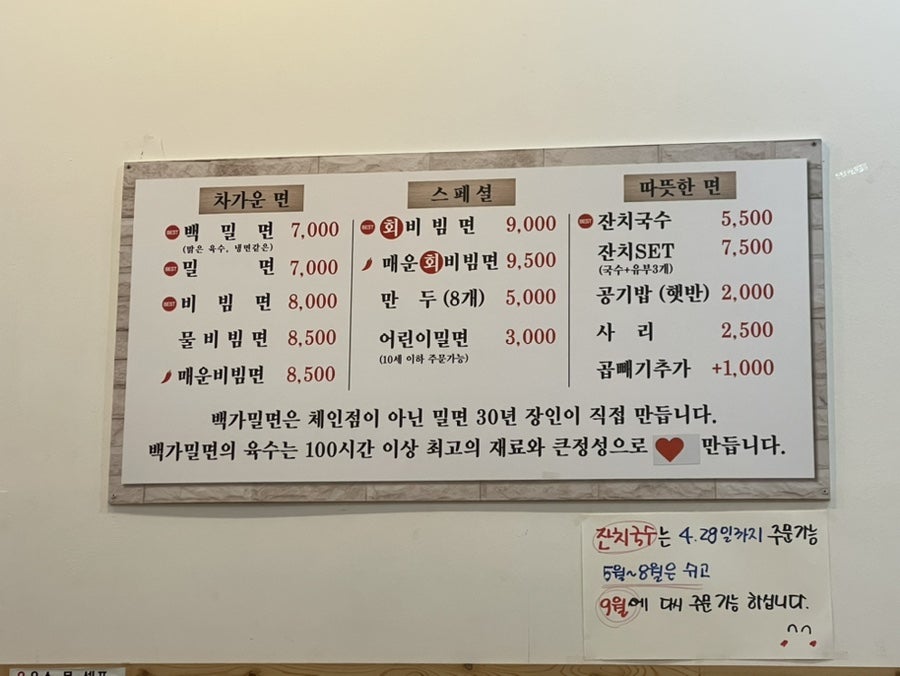 차가운 면
BEST 백 밀 면 7,000
(맑은 육수, 냉면같은)
BEST 밀 면 7,000
BEST 비 빔 면 8,000
물 비 빔 면 8,500
매운비빔면 8,500
스 페 셜
BEST 회 비 빔 면 9,000
매운 회 비빔면 9,500
만 두 (8개) 5,000
어린이밀면 3,000
(10세 이하 주문가능)
따뜻한 면
BEST 잔치국수 5,500
잔치SET 7,500
(국수+유부3개)
공기밥 (햇반) 2,000
사 리 2,500
곱빼기추가 +1,000
백가밀면은 체인점이 아닌 밀면 30년 장인이 직접 만듭니다.
백가밀면의 육수는 100시간 이상 최고의 재료와 큰정성으로 만듭니다.
잔치국수는 4.28일까지 주문가능
5월~8월은 쉬고
9월에 다시 주문 가능 하십니다.